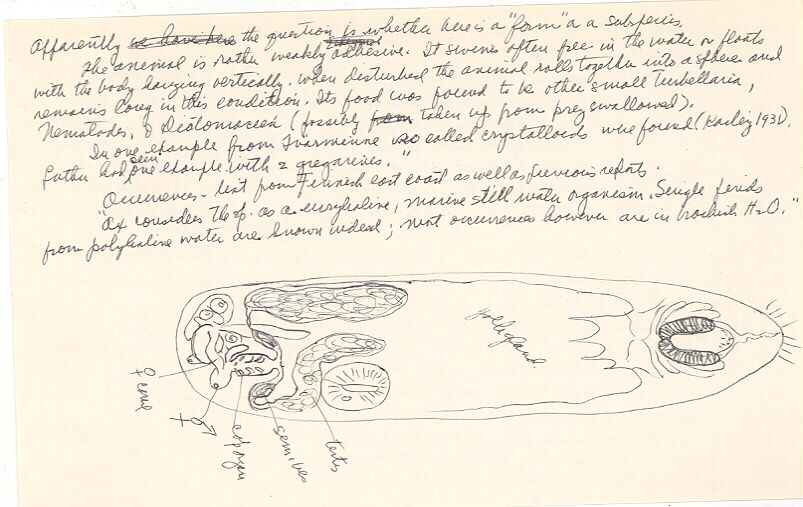 Apparently we have here the question is whether here is a "form" or a subspecies.
The animal is rather weakly adhesive. It swims often free in the water or floats
with the body hanging vertically. When disturbed the animal rolls together into a sphere and
remains long in this condition. Its food was found to be other small Turbellaria,
Nematodes, & Diatomaceen (possibly from taken up from prey swallowed).
In one example from Tvarminne so called crystalloids were found (Karling 1931).
Luther had seen one example with 2 gregarines."
Occurrences - list from Finnish east coast as well as previous reports.
"Ax considers the sp. as a euryhaline, marine still water organism. Single finds
from polyhaline water are known indeed; most occurrences however are in brackish H2O."
yolkgland
♀ cone
♀ ♂
cop organ
sem. ves
testes